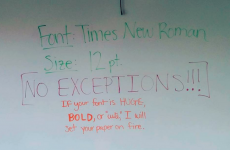 Font: Times New Roman
Size: 12 pt.
NO EXCEPTIONS!!!
If your font is HUGE,
BOLD, or "cute," I will
set your paper on fire.